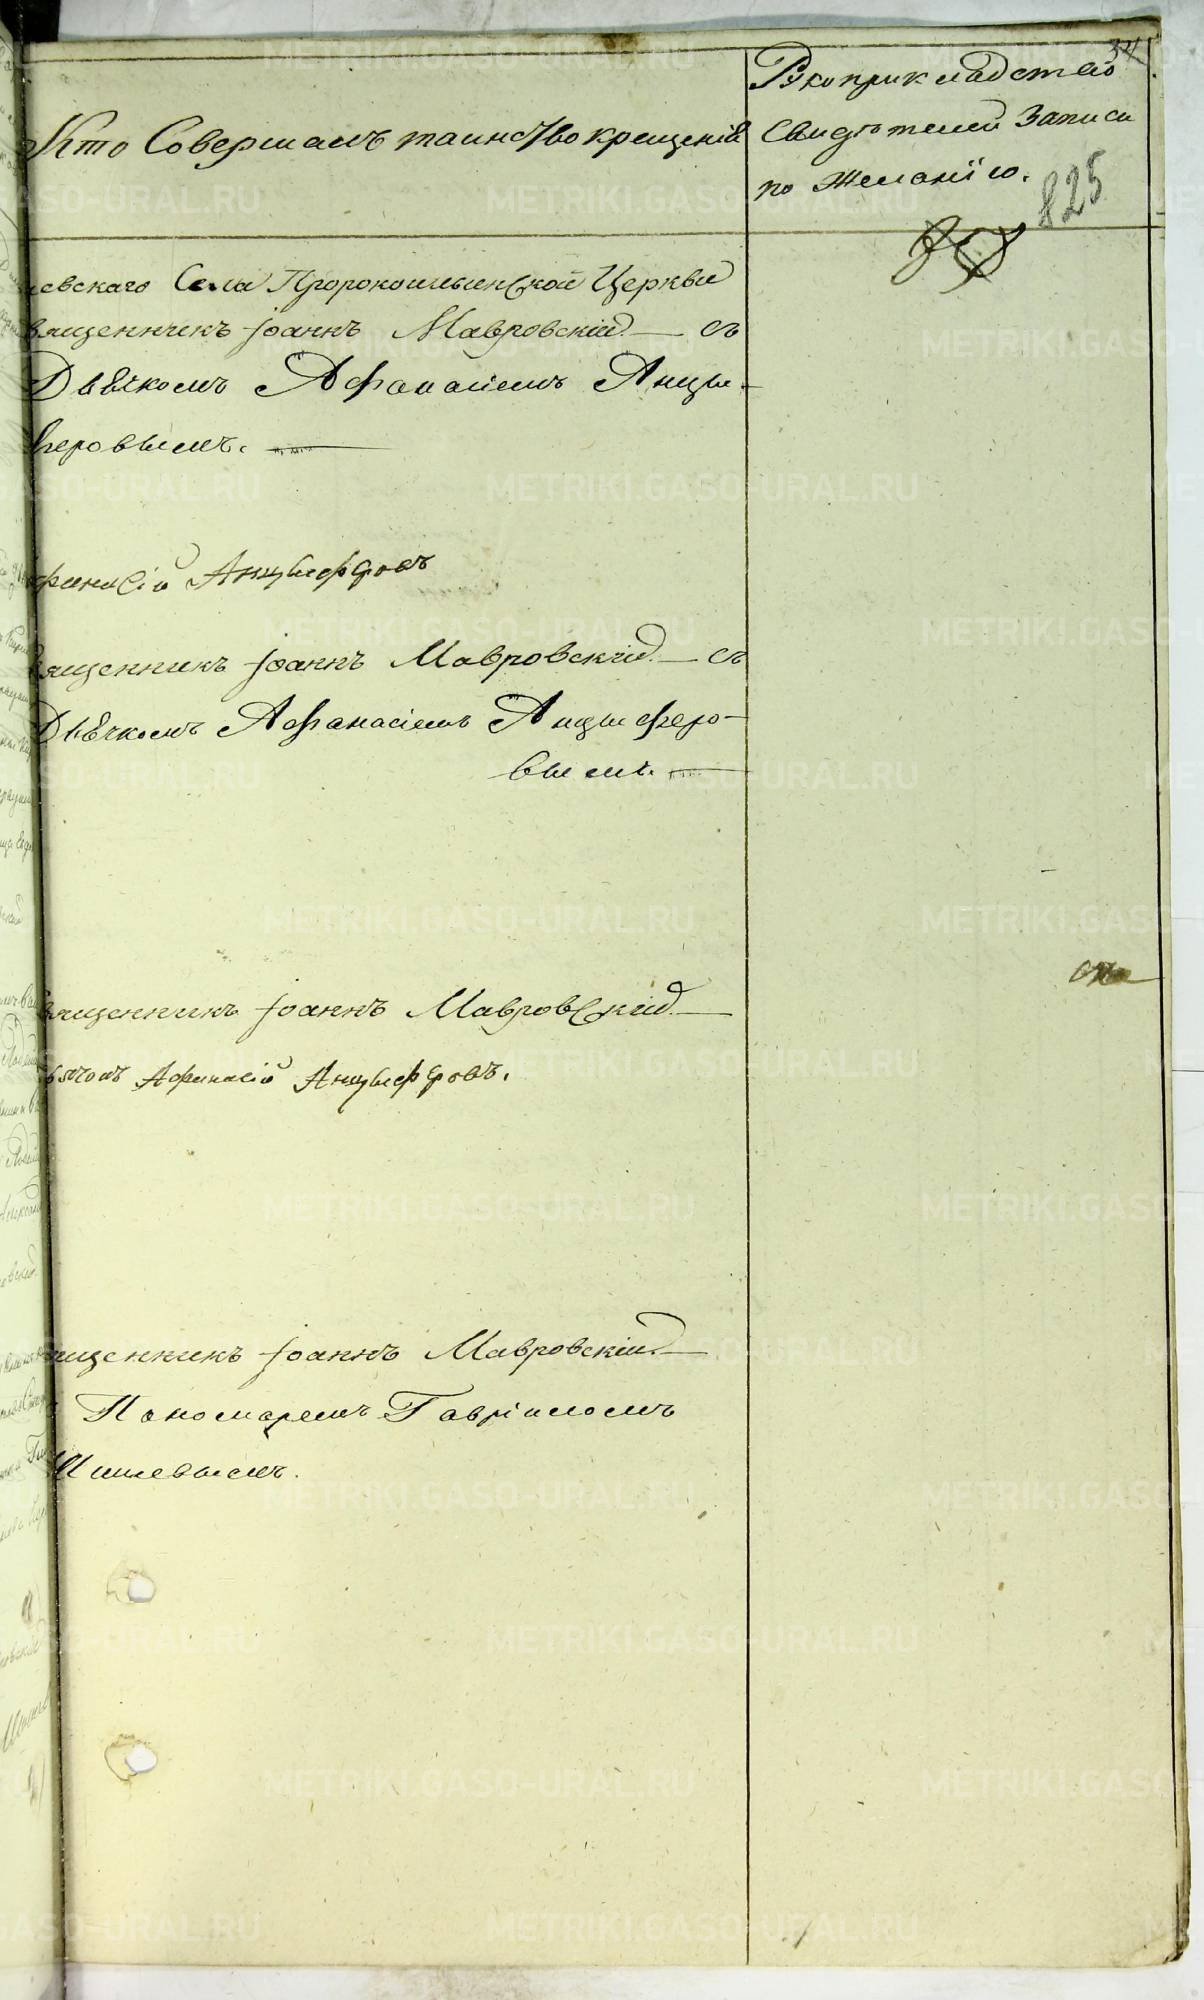 34
Кто Совершалъ таинство крещенія
Рукоприкладство
Свидѣтелей записи
по желанію.
825
левскаго Села Пророкоильинской Церкви
вященникъ Іоаннъ Мавровскій — съ
Дьячкомъ Афанасіемъ Анцы-
феровымъ. —
фанасій Анцыферовъ
вященникъ Іоаннъ Мавровскій — съ
Дьячкомъ Афанасіемъ Анцыферо-
вымъ. —
вященникъ Іоаннъ Мавровскій —
ьячокъ Афанасій Анцыферовъ.
ященникъ Іоаннъ Мавровскій —
Пономаремъ Гавріиломъ
METRIKI.GASO-URAL.RU